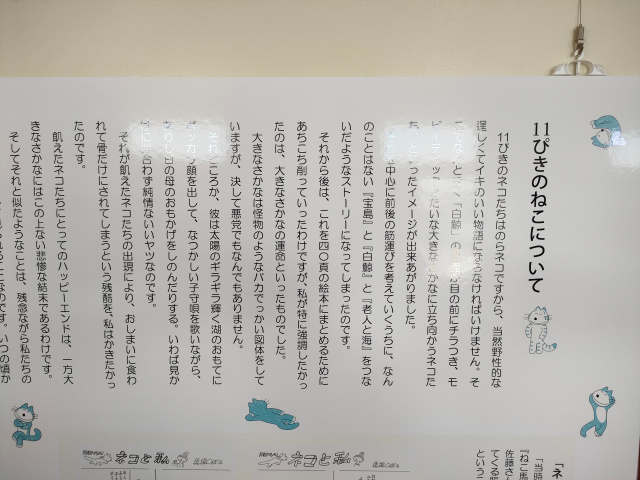 11ぴきのねこについて
11ぴきのネコたちはのらネコですから、当然野性的な
逞しくてイキのいい物語にならなければいけません。そ
「白鯨」の が目の前にチラつき、モ
たいな大きな かなに立ち向かうネコた
ち、 ったイメージが出来あがりました。
中心に前後の筋運びを考えていくうちに、なん
のことはない『宝島』と『白鯨』と『老人と海』をつな
いだようなストーリーになってしまったのです。
それから後は、これを四〇頁の絵本にまとめるために
あちこち削っていったわけですが、私が特に強調したかっ
たのは、大きなさかなの運命といったものでした。
大きなさかなは怪物のようなバカでっかい図体をして
いますが、決して悪党でもなんでもありません。
それどころか、彼は太陽のギラギラ輝く湖のおもてに
ポッカリ顔を出して、なつかしい子守唄を歌いながら、
ありし日の母のおもかげをしのんだりする。いわば見か
けに合わず純情ないいヤツなのです。
それが飢えたネコたちの出現により、おしまいに食わ
れて骨だけにされてしまうという残酷を、私はかきたかっ
たのです。
飢えたネコたちにとってのハッピーエンドは、一方大
きなさかなにはこの上ない悲惨な結末であるわけです。
そしてそれと似たようなことは、残念ながら私たちの
なのです。いつの頃か
「ネ
「当時
『ねこ馬
佐藤さん
てくる
という
ネコと私
ネコと私